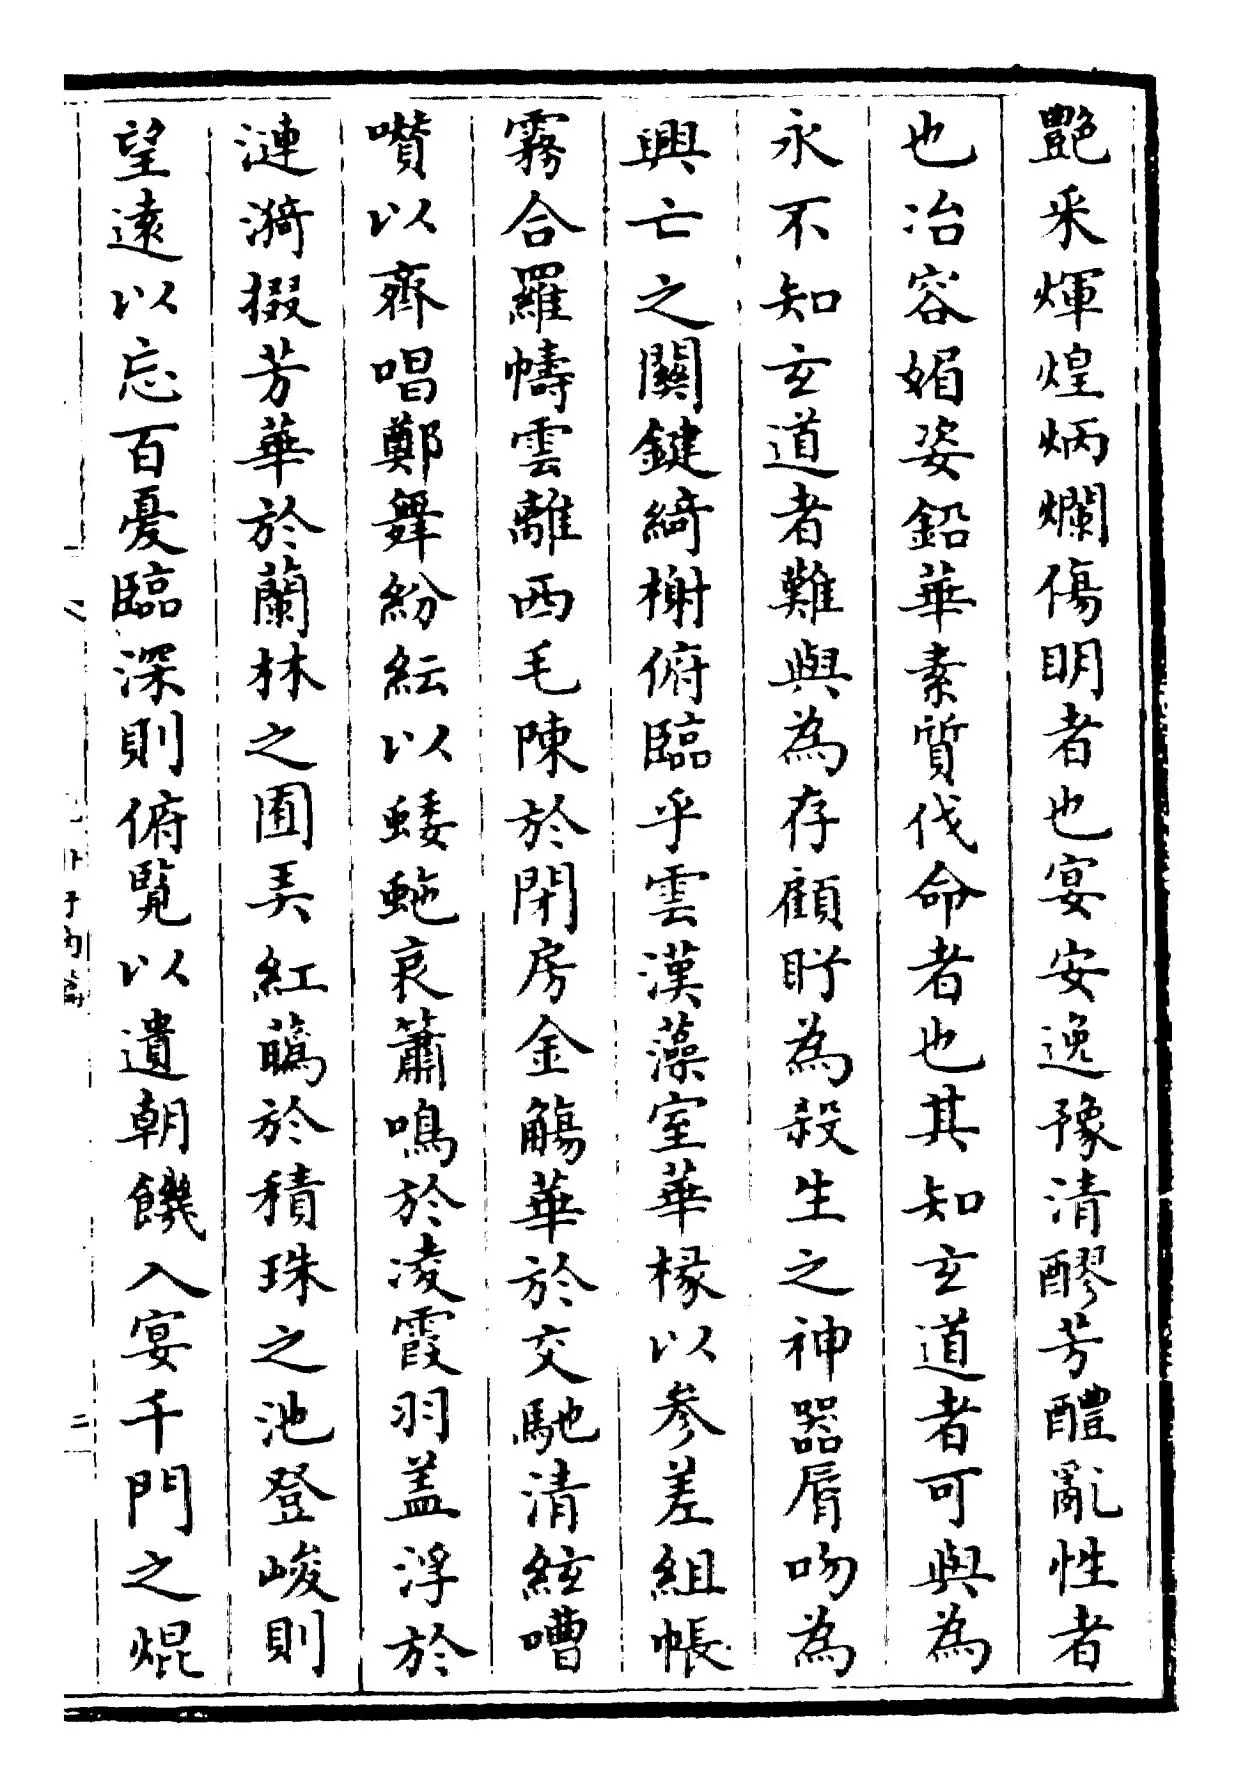 艷采煇煌炳爛傷明者也宴安逸豫清醪芳醴亂性者
也冶容媚姿鉛華素質伐命者也其知玄道者可與為
永不知玄道者難與為存顧盻為殺生之神器脣吻為
興亡之關鍵綺榭俯臨乎雲漢藻室華椽以參差組帳
霧合羅幬雲離西毛陳於閑房金觴華於交馳清絃嘈
囋以齊唱鄭舞紛紜以蜲蛇哀簫鳴於凌霞羽蓋浮於
漣漪掇芳華於蘭林之囿弄紅葩於積珠之池登峻則
望遠以忘百憂臨深則俯覽以遺朝饑入宴千門之焜
内篇
二